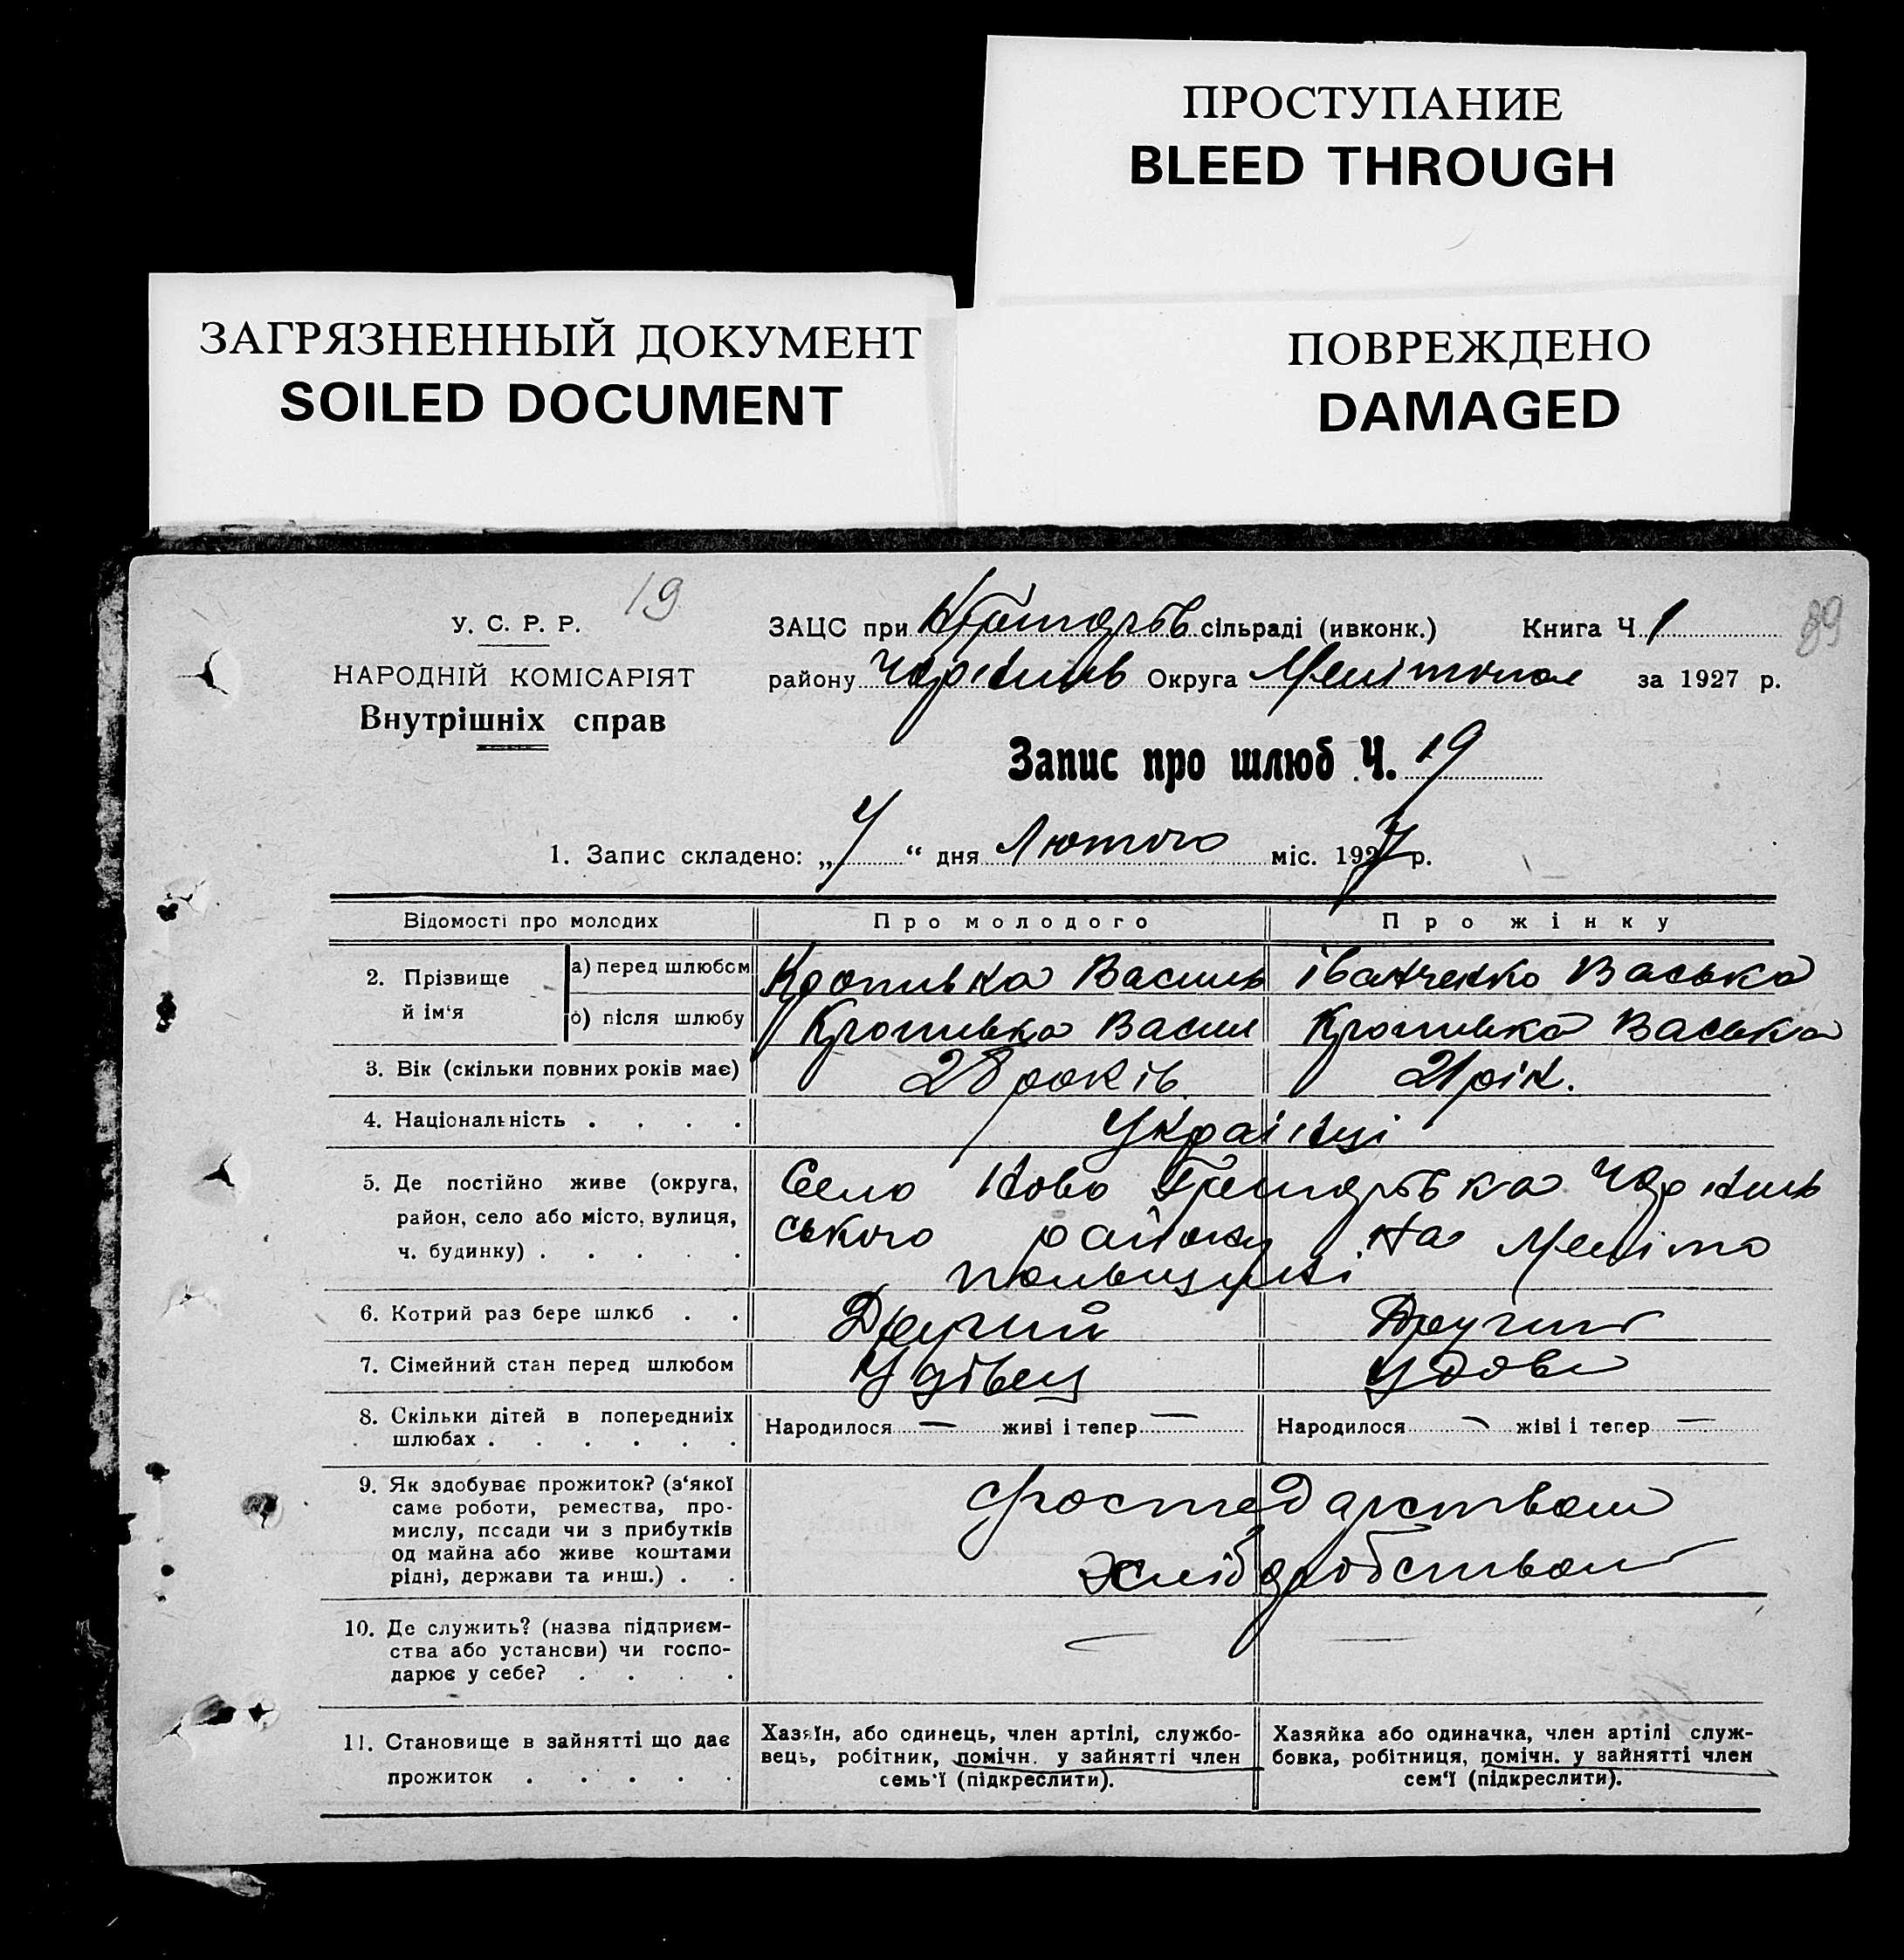 ПРОСТУПАНИЕ
BLEED THROUGH
ЗАГРЯЗНЕННЫЙ ДОКУМЕНТ
SOILED DOCUMENT
ПОВРЕЖДЕНО
DAMAGED
19
89
У. С. Р. Р.
НАРОДНІЙ КОМІСАРІЯТ
Внутрішніх справ
ЗАЦС при сільраді (ивконк.) Книга Ч 1
району Округа Мелітопол за 1927 р.
Запис про шлюб Ч. 19
1. Запис складено: „7“ дня Лютого міс. 1927 р.
Відомості про молодих Про молодого Про жінку
2. Прізвище й ім'я
а) перед шлюбом Кропивка Василь Іванченко Васька
б) після шлюбу Кропивка Васил Кропивка Васька
3. Вік (скільки повних років має) 28 років 21 рік.
4. Національність . . . . Українці
5. Де постійно живе (округа, Село Ново
район, село або місто, вулиця, ського району на Меліто
ч. будинку) . . . . . польщині
6. Котрий раз бере шлюб . . Другий Другий
7. Сімейний стан перед шлюбом Удівец Удова
8. Скільки дітей в попередниіх Народилося — живі і тепер — Народилося — жіві і тепер —
шлюбах . . . . . .
9. Як здобуває прожиток? (з'якої
саме роботи, ремества, про- Господарством
мислу, посади чи з прибутків
од майна або живе коштами хліборобством
рідні, держави та инш.) . .
10. Де служить? (назва підприєм-
ства або установи) чи госпо- — —
дарює у себе? . . . .
11. Становище в зайнятті що дає
прожиток . . . . .
Хазяїн, або одинець, член артілі, службо-
вець, робітник, помічн. у зайнятті член
семь'ї (підкреслити).
Хазяйка або одиначка, член артілі служ-
бовка, робітниця, помічн. у зайнятті член
сем'ї (підкреслити).